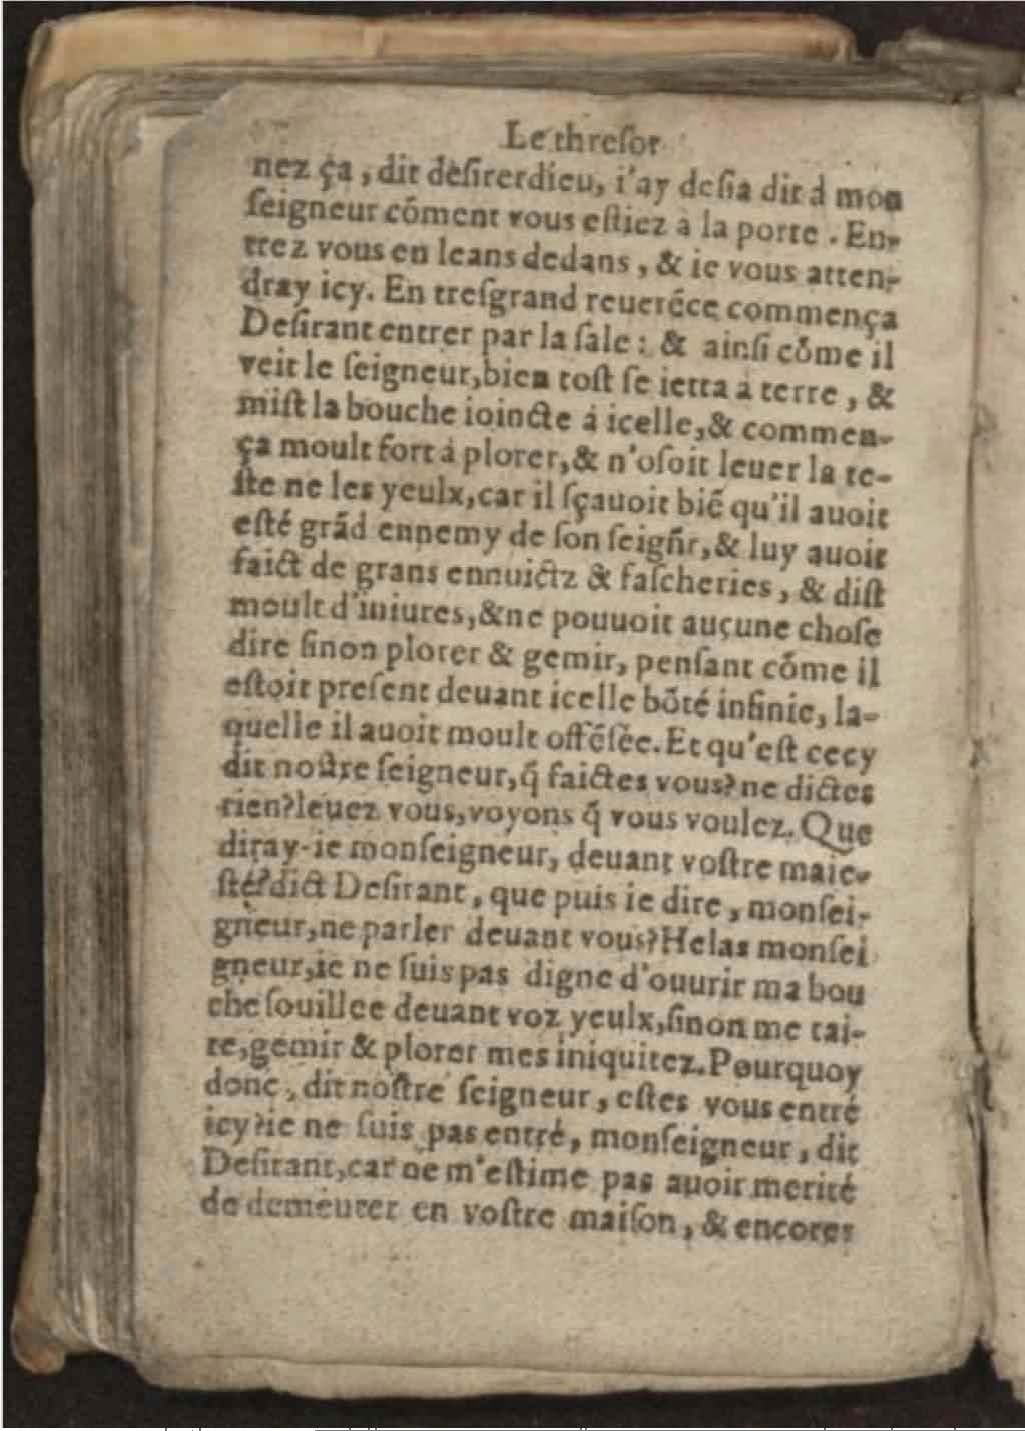 Le threſor
nez ça, dit deſirerdieu, i'ay deſia dit à mon
ſeigneur cõment vous eſtiez à la porte. En-
trez vous en leans dedans, & ie vous atten-
dray icy. En treſgrand reuerẽce commença
Deſirant entrer par la ſale: & ainſi cõme il
veit le ſeigneur, bien toſt ſe ietta à terre, &
miſt la bouche ioincte á icelle, & commen-
ça moult fort á plorer, & n'oſoit leuer la te-
ſte ne les yeulx, car il ſçauoit biẽ qu'il auoit
eſté grãd ennemy de ſon ſeigñr, & luy auoit
faict de grans ennuictz & faſcheries, & diſt
moult d'iniures, &ne pouuoit aucune choſe
dire ſinon plorer & gemir, penſant cõme il
eſtoit preſent deuant icelle bõté infinie, la-
quelle il auoit moult offẽſée. Et qu'eſt cecy
dit noſtre ſeigneur, q̃ faictes vous? ne dictes
rien? leuez vous, voyons q̃ vous voulez. Que
diray-ie monſeigneur, deuant voſtre maie-
ſté? dict Deſirant, que puis ie dire, monſei-
gneur, ne parler deuant vous? Helas monſei
gneur, ie ne ſuis pas digne d'ouurir ma bou
che ſouillee deuant voz yeulx, ſinon me tai-
re, gemir & plorer mes iniquitez. Pourquoy
donc, dit noſtre ſeigneur, eſtes vous entré
icy? ie ne ſuis pas entré, monſeigneur, dit
Deſirant, car ne m'eſtime pas auoir merité
de demeurer en voſtre maiſon, & encores